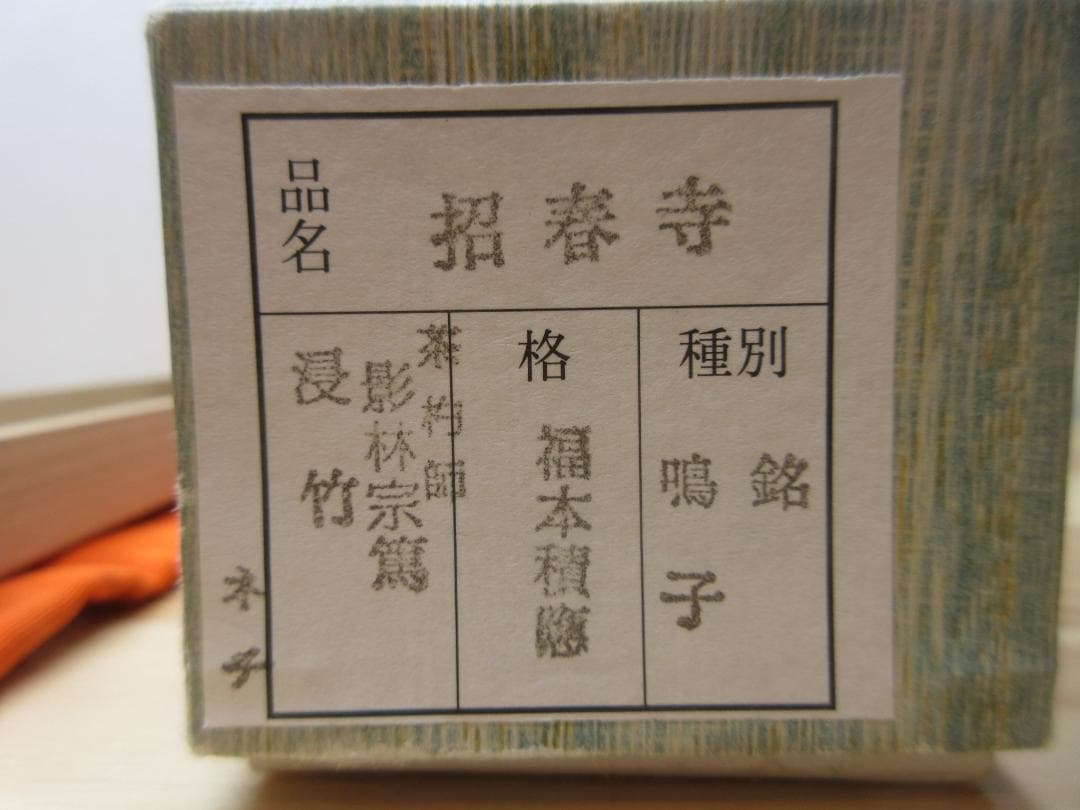 品名
招春寺
種別
銘
鳴子
格
福本積應
茶杓師
影林宗篤
浸竹
ネチ